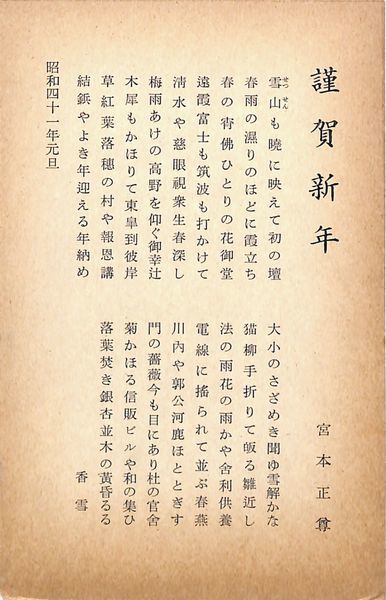 謹賀新年
宮本正尊
雪山も曉に映えて初の壇
せつせん
大小のさざめき聞ゆ雪解かな
春雨の濕りのほどに霞立ち
猫柳手折りて皈る雛近し
春の宵佛ひとりの花御堂
法の雨花の雨かや舍利供養
遠霞富士も筑波も打かけて
電線に搖られて並ぶ春燕
清水や慈眼視衆生春深し
川内や郭公河鹿ほととぎす
梅雨あけの高野を仰ぐ御幸辻
門の薔薇今も目にあり杜の官舍
木犀もかほりて東皐到彼岸
菊かほる信販ビルや和の集ひ
草紅葉落穗の村や報恩講
落葉焚き銀杏並木の黄昏るる
結鋲やよき年迎える年納め
香雪
昭和四十一年元旦